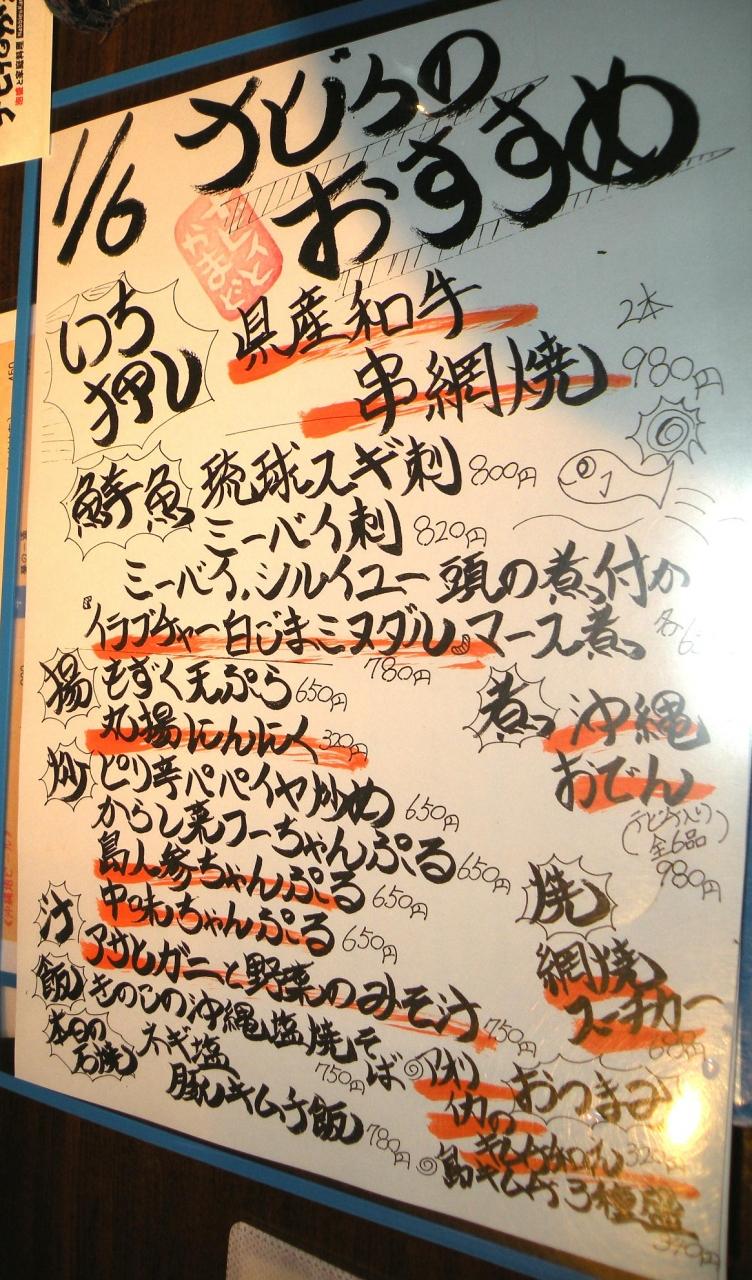 1/6
ナビィの
おすすめ
いち
押し
県産和牛
串網焼
2本
980円
鮮魚
琉球スギ刺 800円
ミーバイ刺 820円
ミーバイ、シルイユー頭の煮付か
マース煮 各
イラブチャー白ごまミヌダル 780円
揚
もずく天ぷら 650円
丸揚にんにく 320円
炒
ピリ辛パパイヤ炒め 650円
からし菜フーちゃんぷる 650円
島人参ちゃんぷる 650円
中味ちゃんぷる 650円
汁
アサヒガニと野菜のみそ汁 750円
飯
きのこの沖縄塩焼そば 750円
本日の
石焼
ネギ塩
豚キムチ飯 780円
煮
沖縄
おでん
(テビチ入り
全6品)
980円
焼
網焼
スーチカー
680円
おつまみ
イカの
320円
島キムチ3種盛
370円